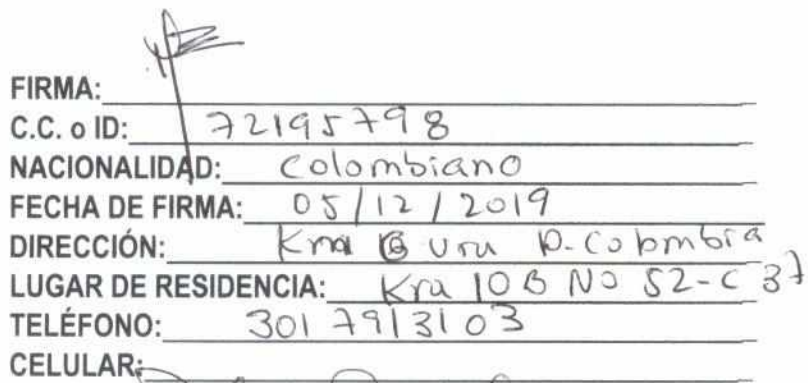 FIRMA:
C.C. o ID: 72195798
NACIONALIDAD: Colombiano
FECHA DE FIRMA: 05/12/2019
DIRECCIÓN: Kra
LUGAR DE RESIDENCIA: Kra 10B No 52-C 37
TELÉFONO: 3017913103
CELULAR: